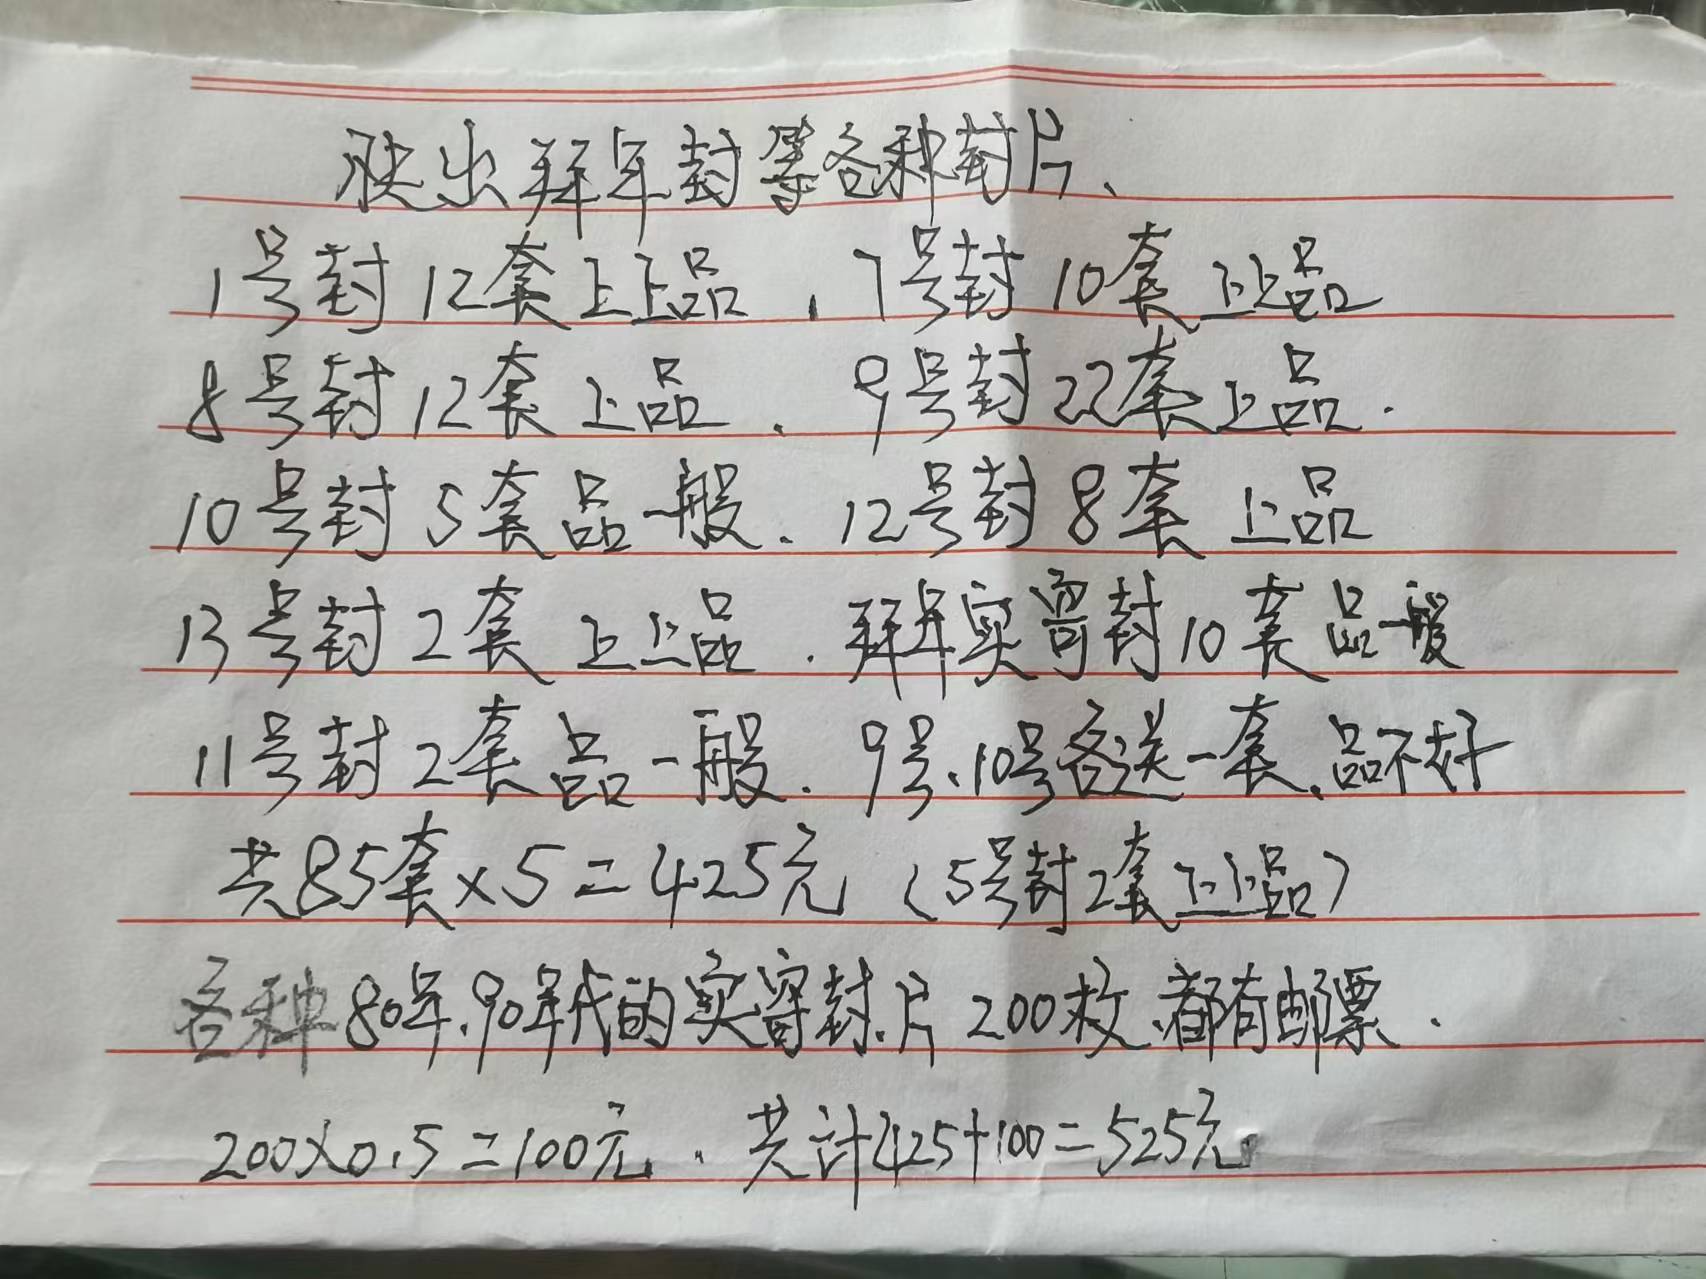 快出拜年封等各种封片、
1号封12套上上品，7号封10套上上品
8号封12套上品、9号封22套上品.
10号封5套品一般、12号封8套上品
13号封2套上上品.拜年实寄封10套品一般
11号封2套品一般.9号、10号各送一套、品不好
共85套×5=425元（5号封2套上上品）
各种80年、90年代的实寄封、片200枚、都有邮票.
200×0.5=100元.共计425+100=525元.